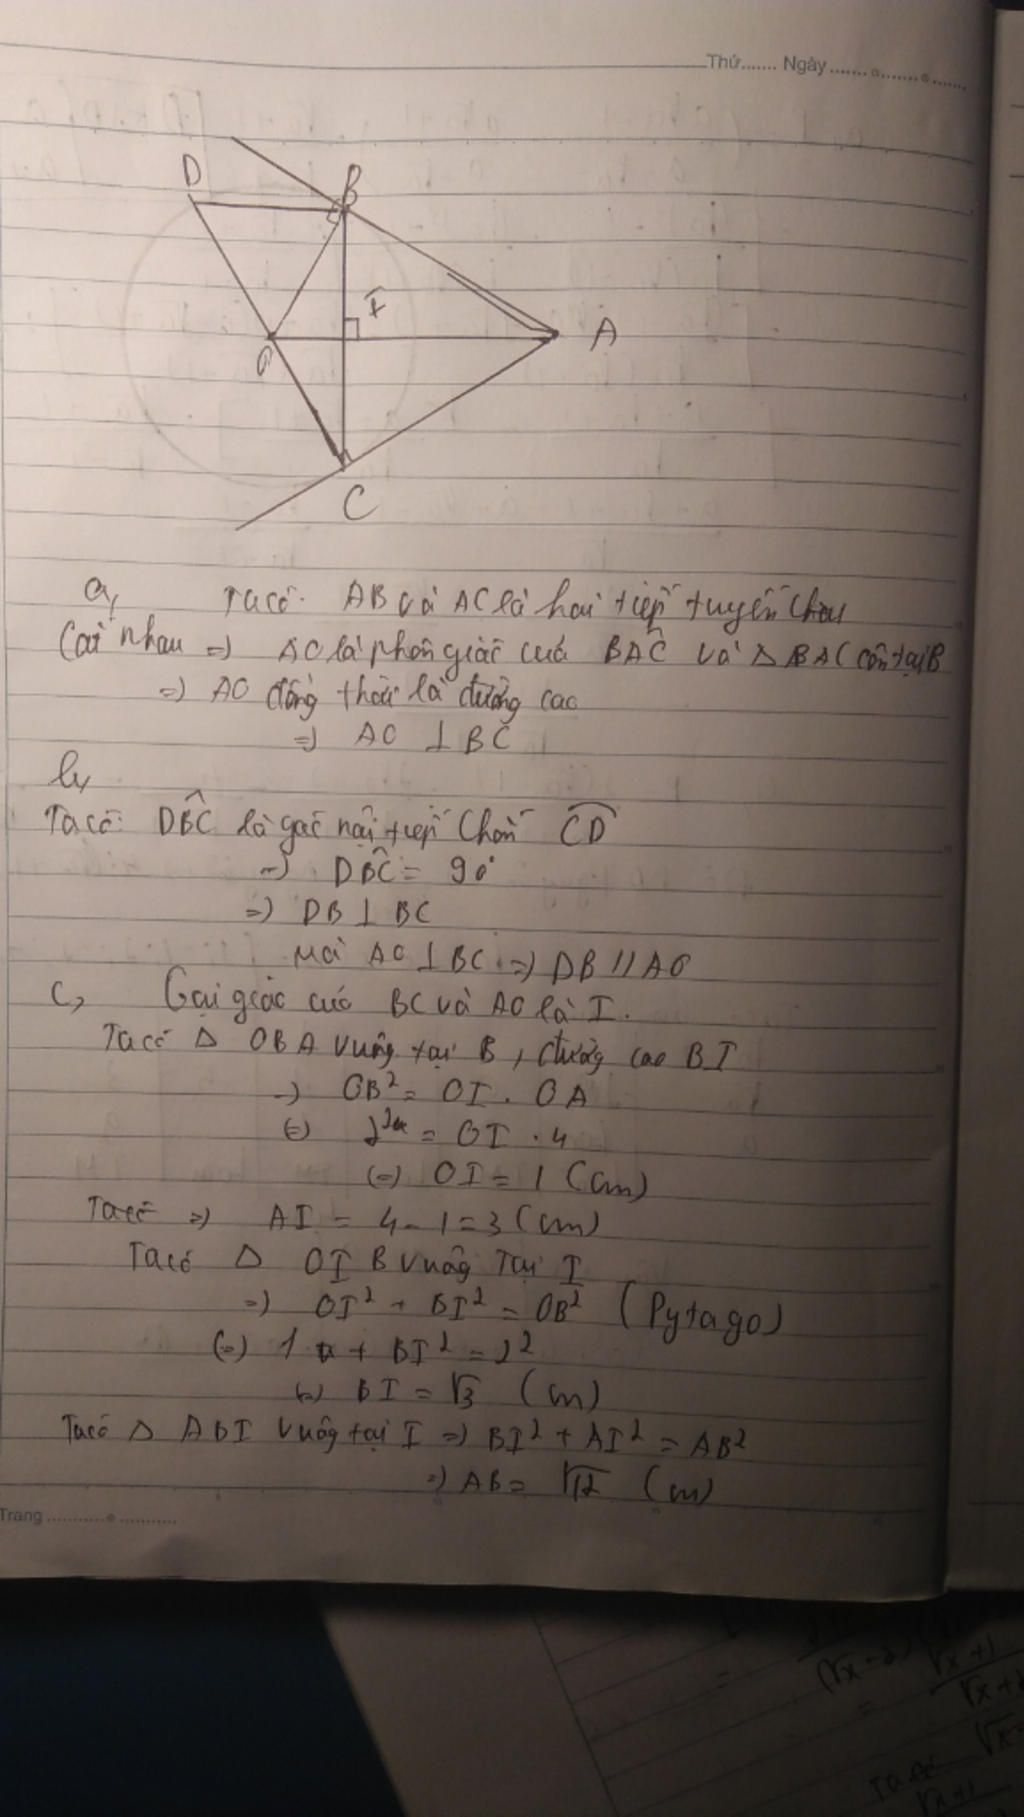 Thứ....... Ngày.......
D
B
I
A
O
C
a, Ta có: AB và AC là hai tiếp tuyến
cắt nhau => AO là phân giác của BAC và Δ BAC cân tại B
=> AO đồng thời là đường cao
=> AO ⊥ BC
b,
Ta có: DBC là góc nội tiếp chắn CD
=> DBC = 90°
=> DB ⊥ BC
Mà AO ⊥ BC => DB // AO
c, Gọi giao của BC và AO là I.
Ta có Δ OBA vuông tại B, đường cao BI
=> OB² = OI . OA
(=) = OI . 4
(=) OI = 1 (cm)
Ta có => AI = 4 - 1 = 3 (cm)
Ta có Δ OIB vuông tại I
=> OI² + BI² = OB² (Pytago)
(=) 1 + BI² = 2²
(=) BI = √3 (cm)
Ta có Δ ABI vuông tại I => BI² + AI² = AB²
=> AB = √12 (cm)
Trang
(√x - 2)
√x+1
=
Ta có
√x+1